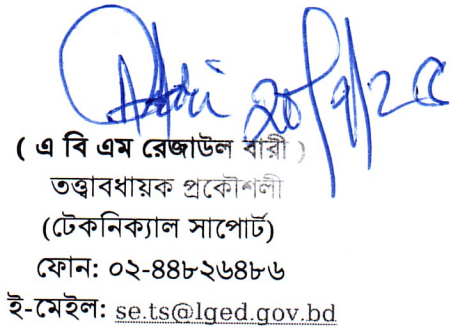 ( এ বি এম রেজাউল বারী )
তত্ত্বাবধায়ক প্রকৌশলী
(টেকনিক্যাল সাপোর্ট)
ফোন: ০২-৪৪৮২৬৪৮৬
ই-মেইল: se.ts@lged.gov.bd